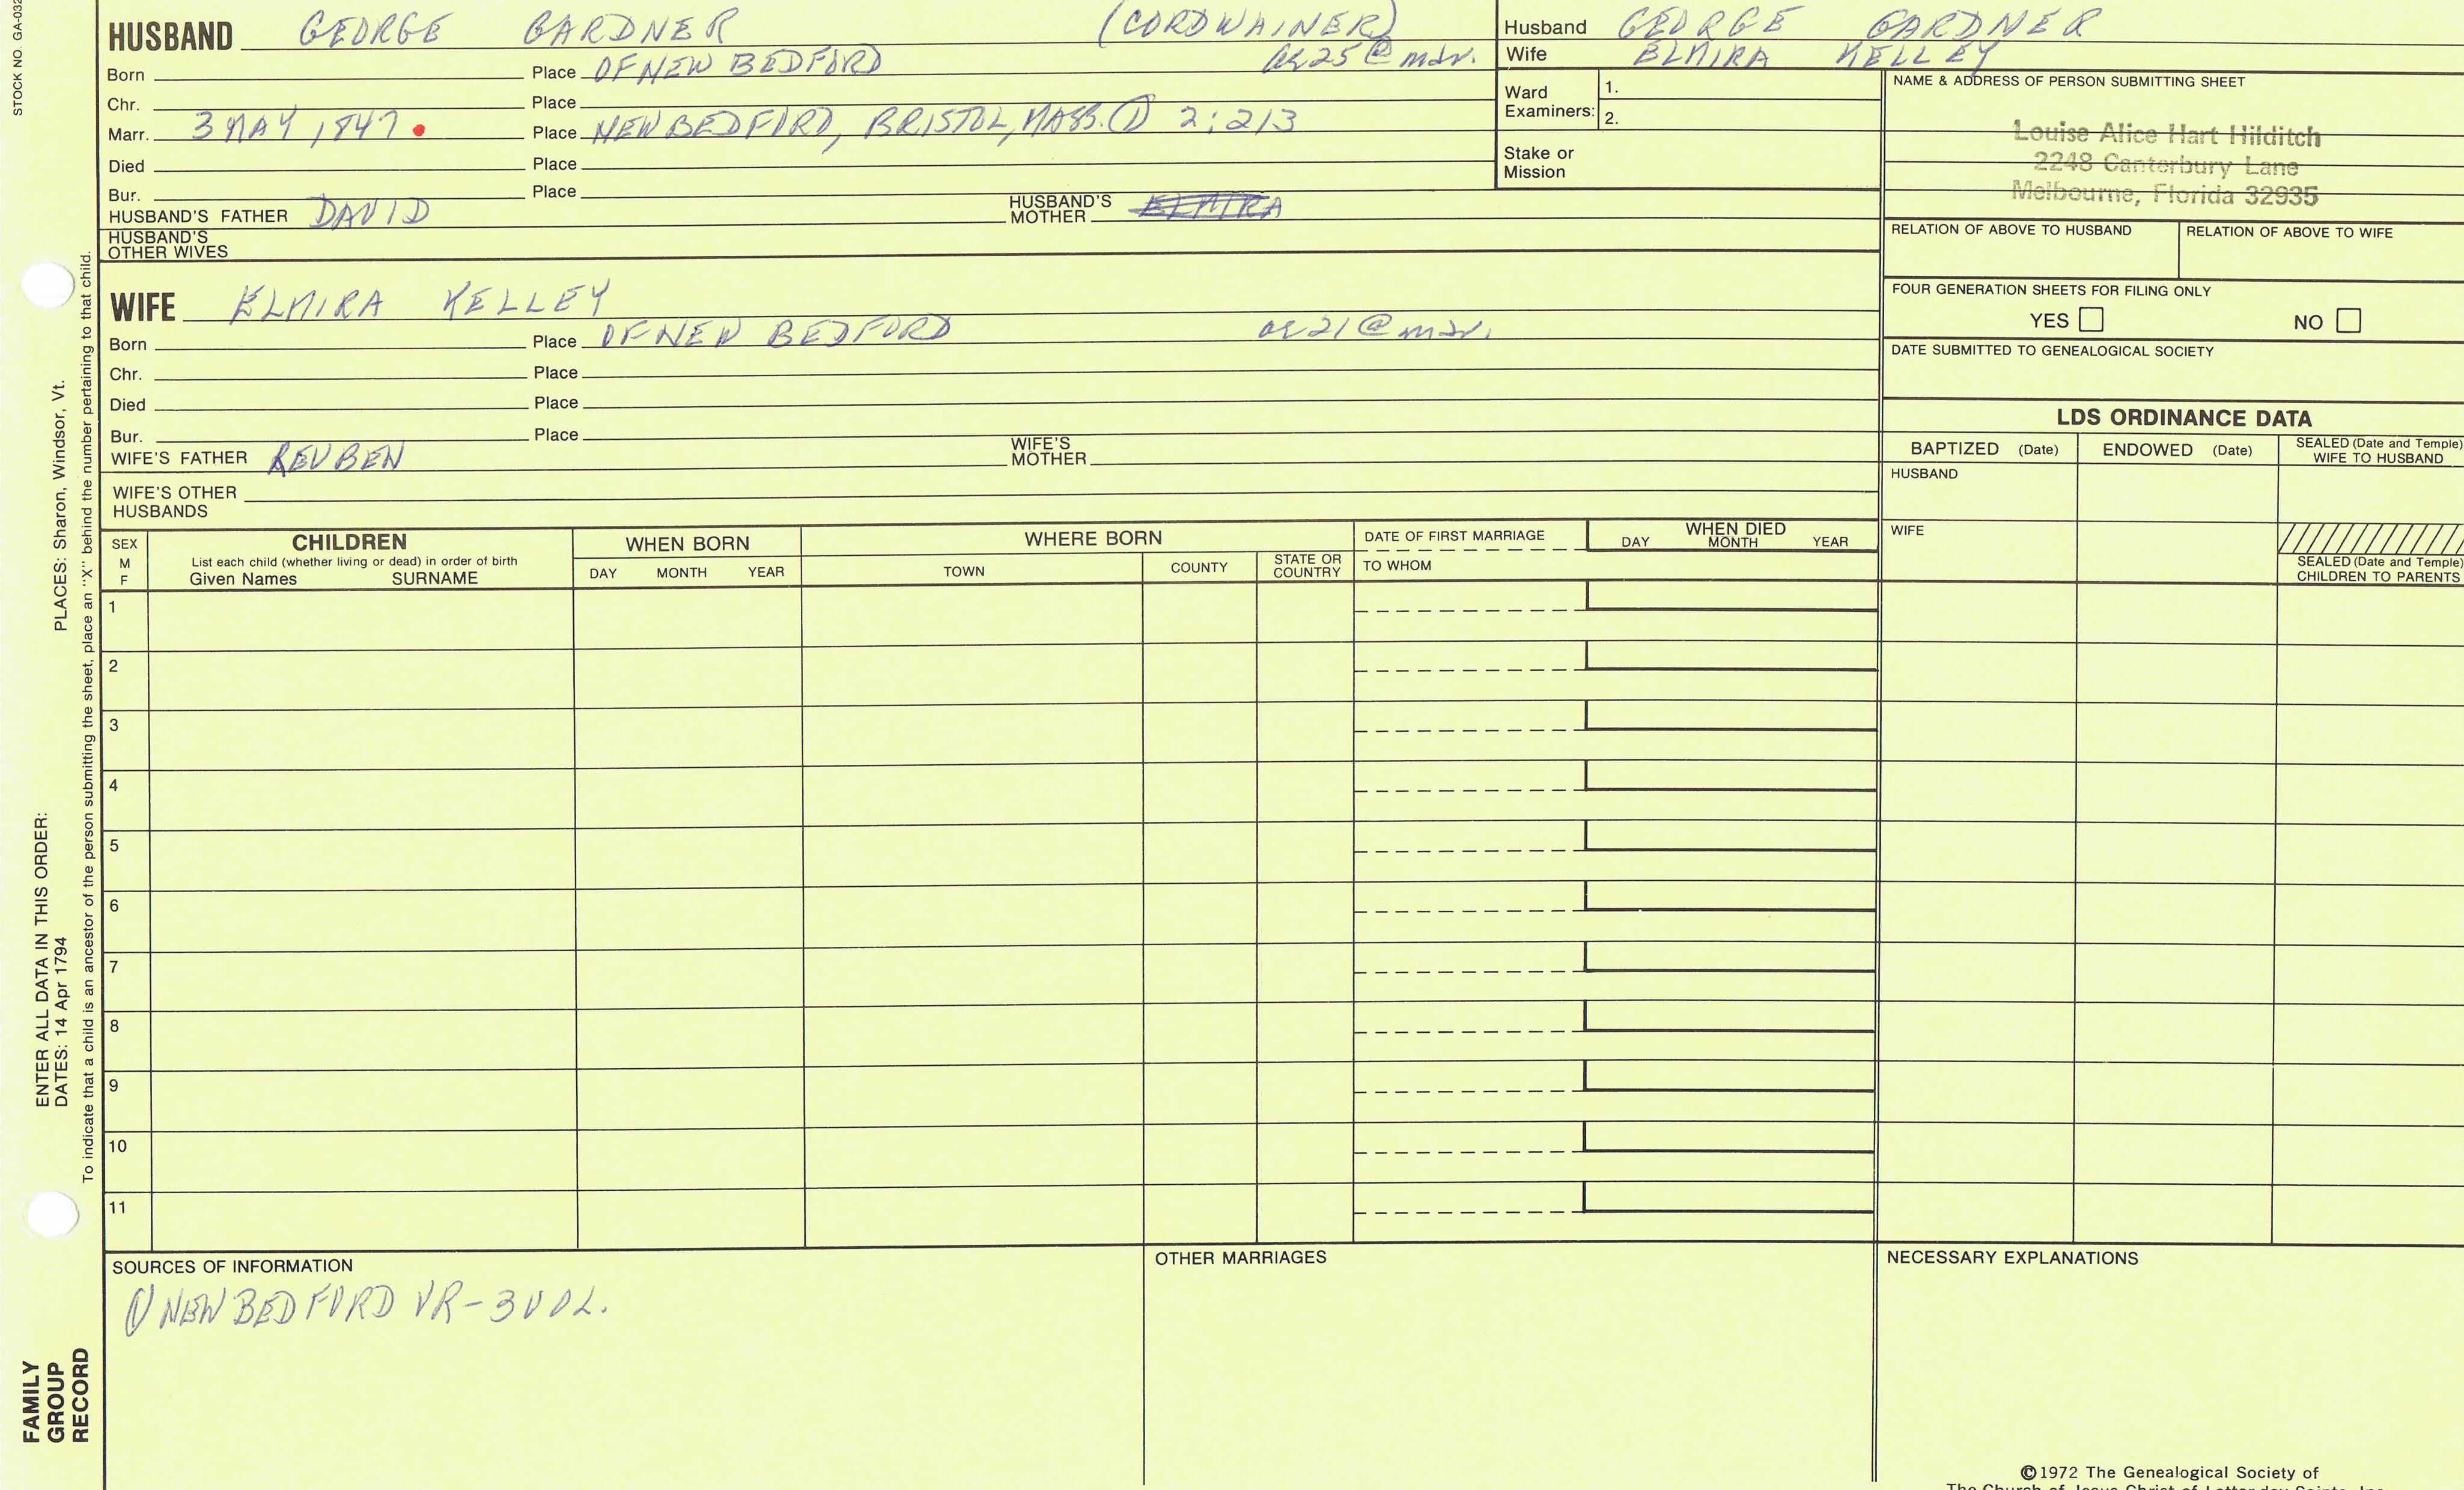 STOCK NO. GA-032
HUSBAND GEORGE GARDNER (CORDWAINER)
Born Place OF NEW BEDFORD ae 25 @ mar.
Chr. Place
Marr. 3 MAY 1847 Place NEW BEDFORD, BRISTOL, MASS. ① 2:213
Died Place
Bur. Place
HUSBAND'S FATHER DAVID HUSBAND'S MOTHER ELMIRA
HUSBAND'S OTHER WIVES
WIFE ELMIRA KELLEY
Born Place OF NEW BEDFORD ae 21 @ mar.
Chr. Place
Died Place
Bur. Place
WIFE'S FATHER REUBEN WIFE'S MOTHER
WIFE'S OTHER HUSBANDS
Husband GEORGE GARDNER
Wife ELMIRA KELLEY
Ward Examiners: 1.
2.
Stake or Mission
NAME & ADDRESS OF PERSON SUBMITTING SHEET
Louise Alice Hart Hilditch
2248 Canterbury Lane
Melbourne, Florida 32935
RELATION OF ABOVE TO HUSBAND RELATION OF ABOVE TO WIFE
FOUR GENERATION SHEETS FOR FILING ONLY
YES NO
DATE SUBMITTED TO GENEALOGICAL SOCIETY
LDS ORDINANCE DATA
BAPTIZED (Date) ENDOWED (Date) SEALED (Date and Temple) WIFE TO HUSBAND
HUSBAND
WIFE
SEALED (Date and Temple) CHILDREN TO PARENTS
SEX M F
CHILDREN
List each child (whether living or dead) in order of birth
Given Names SURNAME
WHEN BORN
DAY MONTH YEAR
WHERE BORN
TOWN COUNTY STATE OR COUNTRY
DATE OF FIRST MARRIAGE
TO WHOM
WHEN DIED
DAY MONTH YEAR
1
2
3
4
5
6
7
8
9
10
11
SOURCES OF INFORMATION
① NEW BEDFORD VR-3 VOL.
OTHER MARRIAGES
NECESSARY EXPLANATIONS
©1972 The Genealogical Society of
The Church of Jesus Christ of Latter-day Saints, Inc.
ENTER ALL DATA IN THIS ORDER:
DATES: 14 Apr 1794 PLACES: Sharon, Windsor, Vt.
To indicate that a child is an ancestor of the person submitting the sheet, place an "X" behind the number pertaining to that child.
FAMILY
GROUP
RECORD